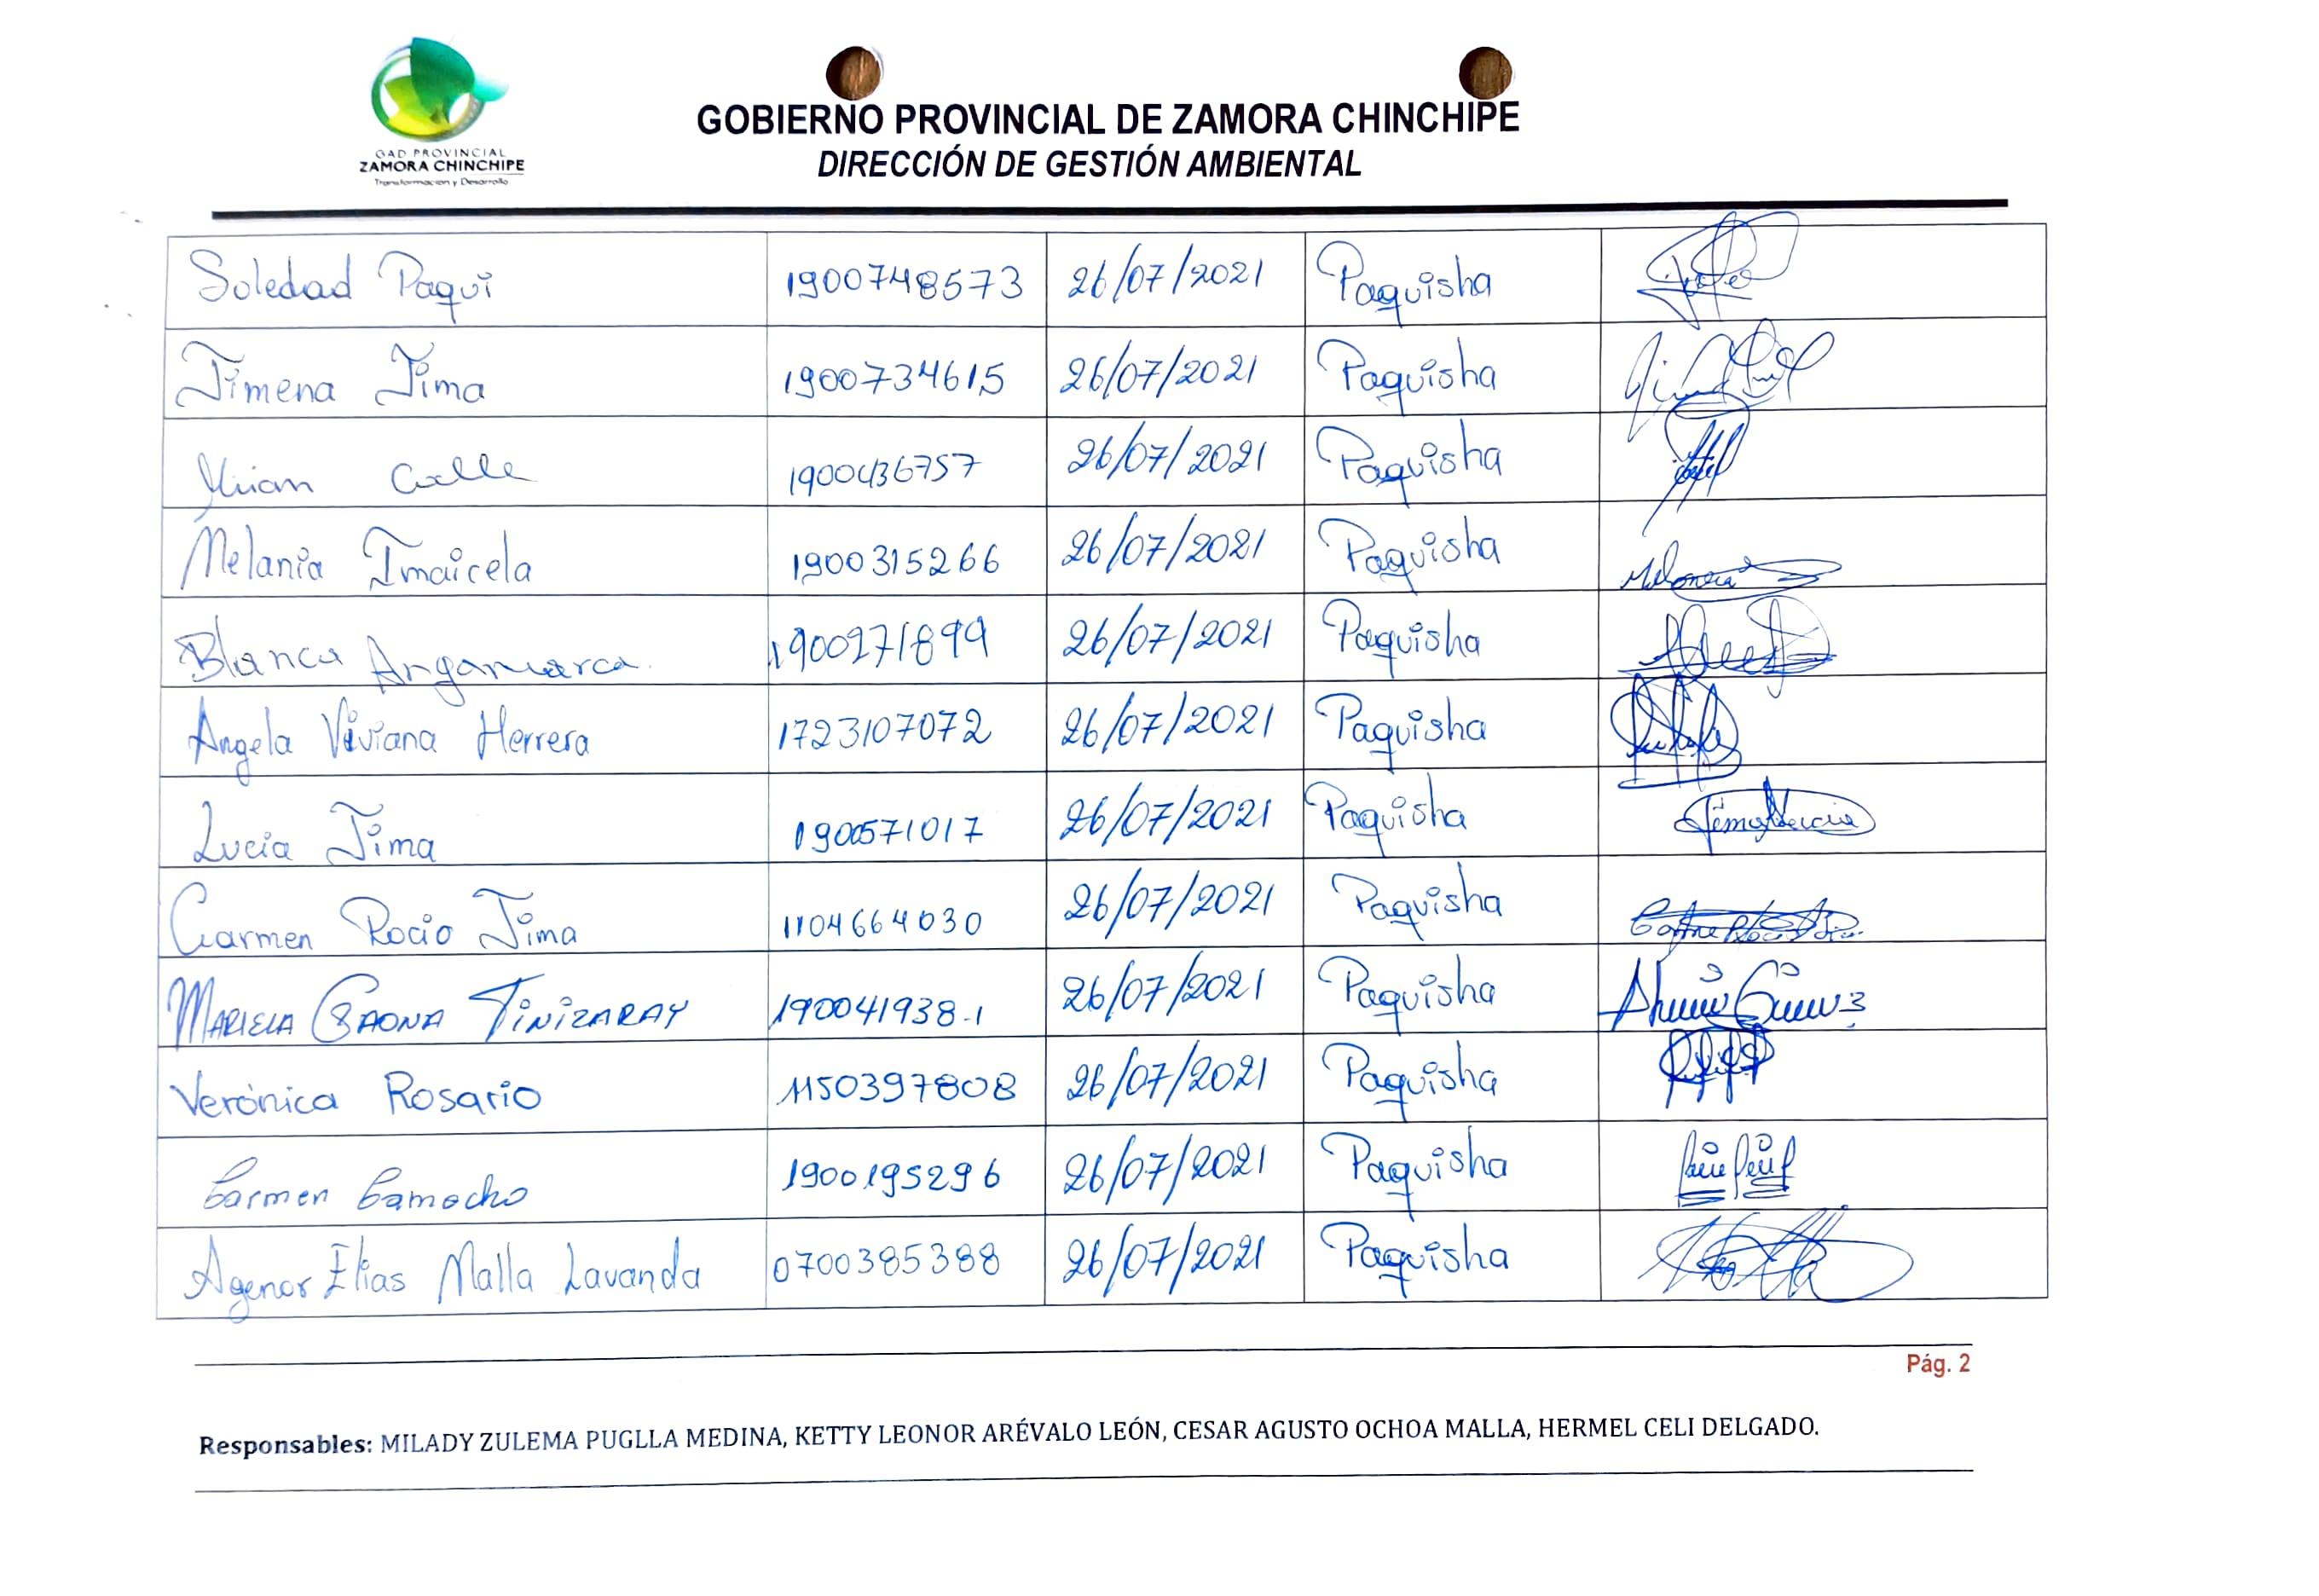 GAD PROVINCIAL
ZAMORA CHINCHIPE
Transformación y Desarrollo
GOBIERNO PROVINCIAL DE ZAMORA CHINCHIPE
DIRECCIÓN DE GESTIÓN AMBIENTAL
Soledad Paqui 1900748573 26/07/2021 Paquisha
Jimena Jima 1900734615 26/07/2021 Paquisha
Calle 1900436757 26/07/2021 Paquisha
Melania Imaicela 1900315266 26/07/2021 Paquisha Melania
Blanca Angamarca. 1900271899 26/07/2021 Paquisha
Angela Viviana Herrera 1723107072 26/07/2021 Paquisha
Lucia Jima 1900571017 26/07/2021 Paquisha
Carmen Rocio Jima 1104664030 26/07/2021 Paquisha
MARIELA GAONA TINIZARAY 190041938-1 26/07/2021 Paquisha
Verónica Rosario 1150397808 26/07/2021 Paquisha
Carmen Camacho 1900195296 26/07/2021 Paquisha
Agenor Elias Malla Lavanda 0700385388 26/07/2021 Paquisha
Pág. 2
Responsables: MILADY ZULEMA PUGLLA MEDINA, KETTY LEONOR ARÉVALO LEÓN, CESAR AGUSTO OCHOA MALLA, HERMEL CELI DELGADO.